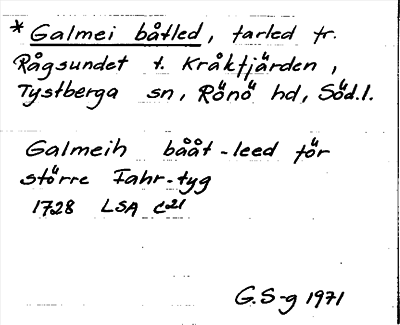 * Galmei båtled, farled fr.
Rågsundet t. Kråkfjärden,
Tystberga sn, Rönö hd, Söd.l.
Galmeih bååt-leed för
större Fahr-tyg
1728 LSA C21
G.S-g 1971